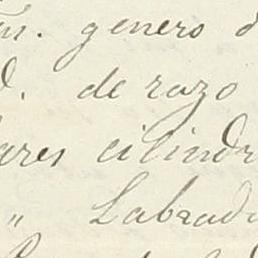 m. genero d
d. de razo
ares cilindr
" Labrad